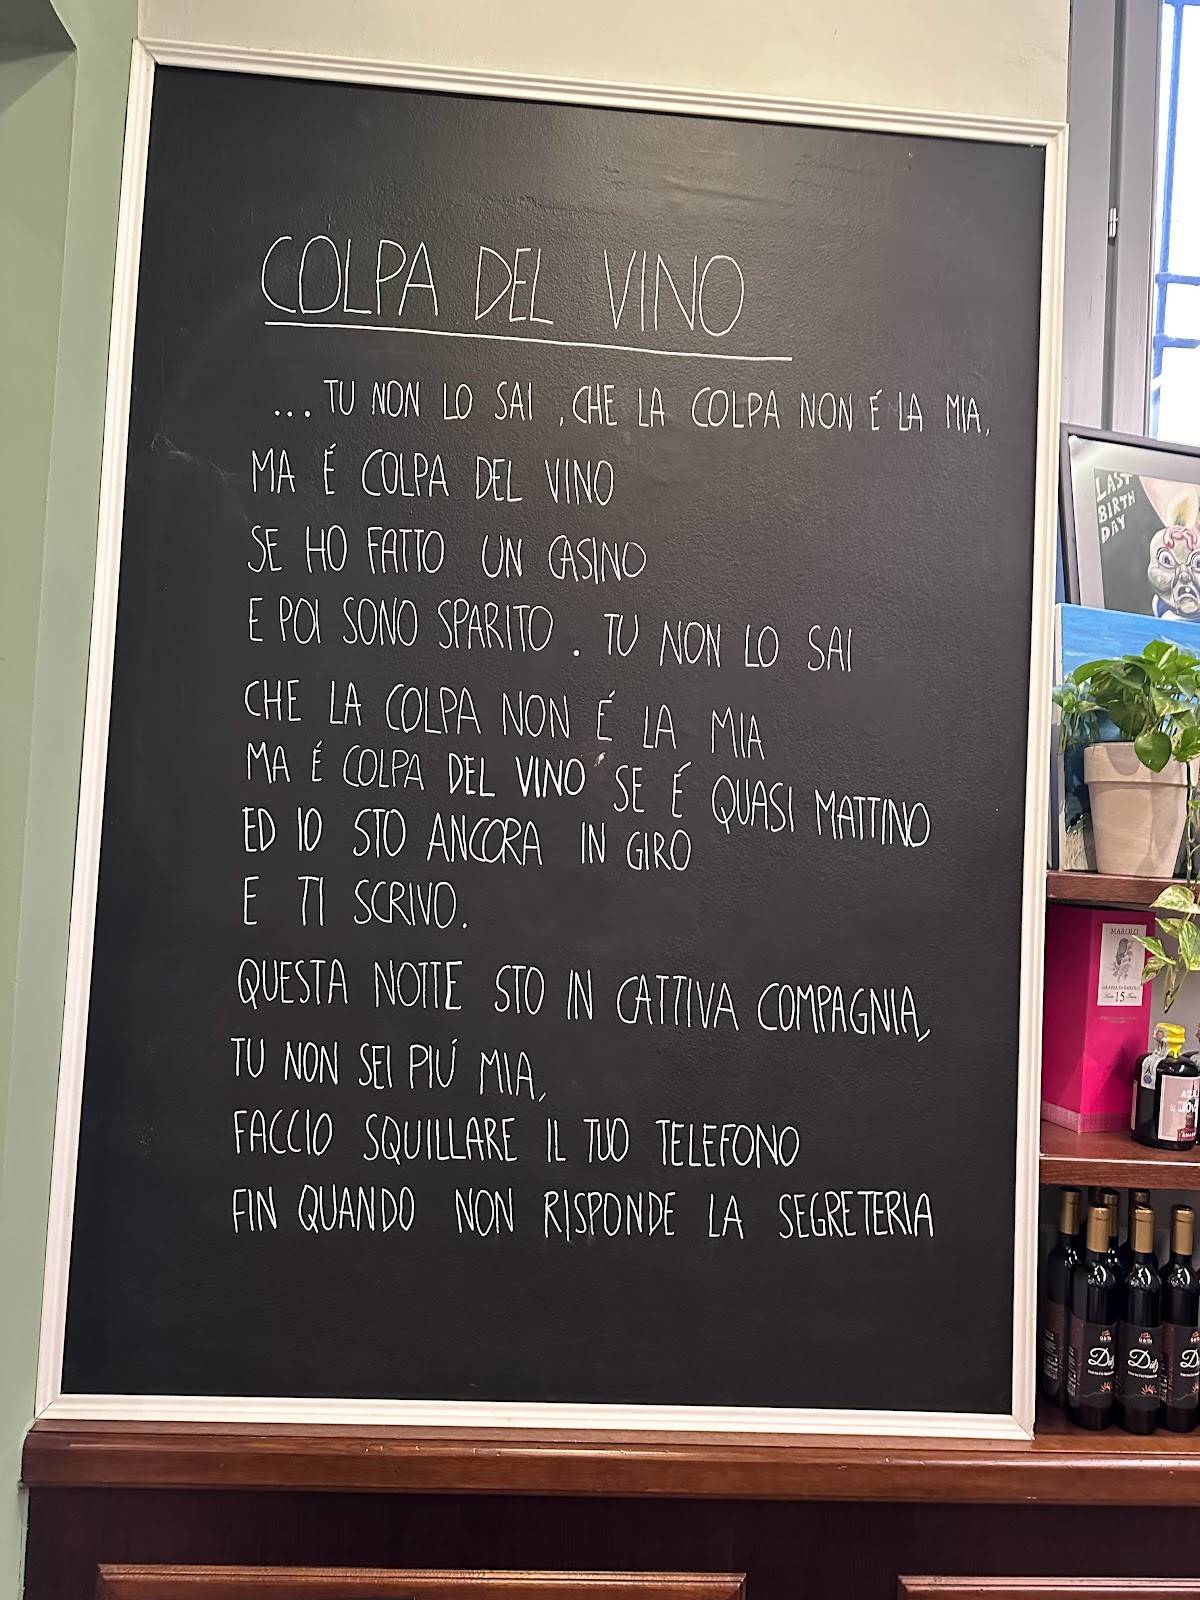 COLPA DEL VINO
... TU NON LO SAI , CHE LA COLPA NON É LA MIA,
MA É COLPA DEL VINO
SE HO FATTO UN CASINO
E POI SONO SPARITO . TU NON LO SAI
CHE LA COLPA NON É LA MIA
MA É COLPA DEL VINO SE É QUASI MATTINO
ED IO STO ANCORA IN GIRO
E TI SCRIVO.
QUESTA NOTTE STO IN CATTIVA COMPAGNIA,
TU NON SEI PIÚ MIA,
FACCIO SQUILLARE IL TUO TELEFONO
FIN QUANDO NON RISPONDE LA SEGRETERIA
LAST
BIRTH
DAY
MAROLO
GRAPPA DI BAROLO
15